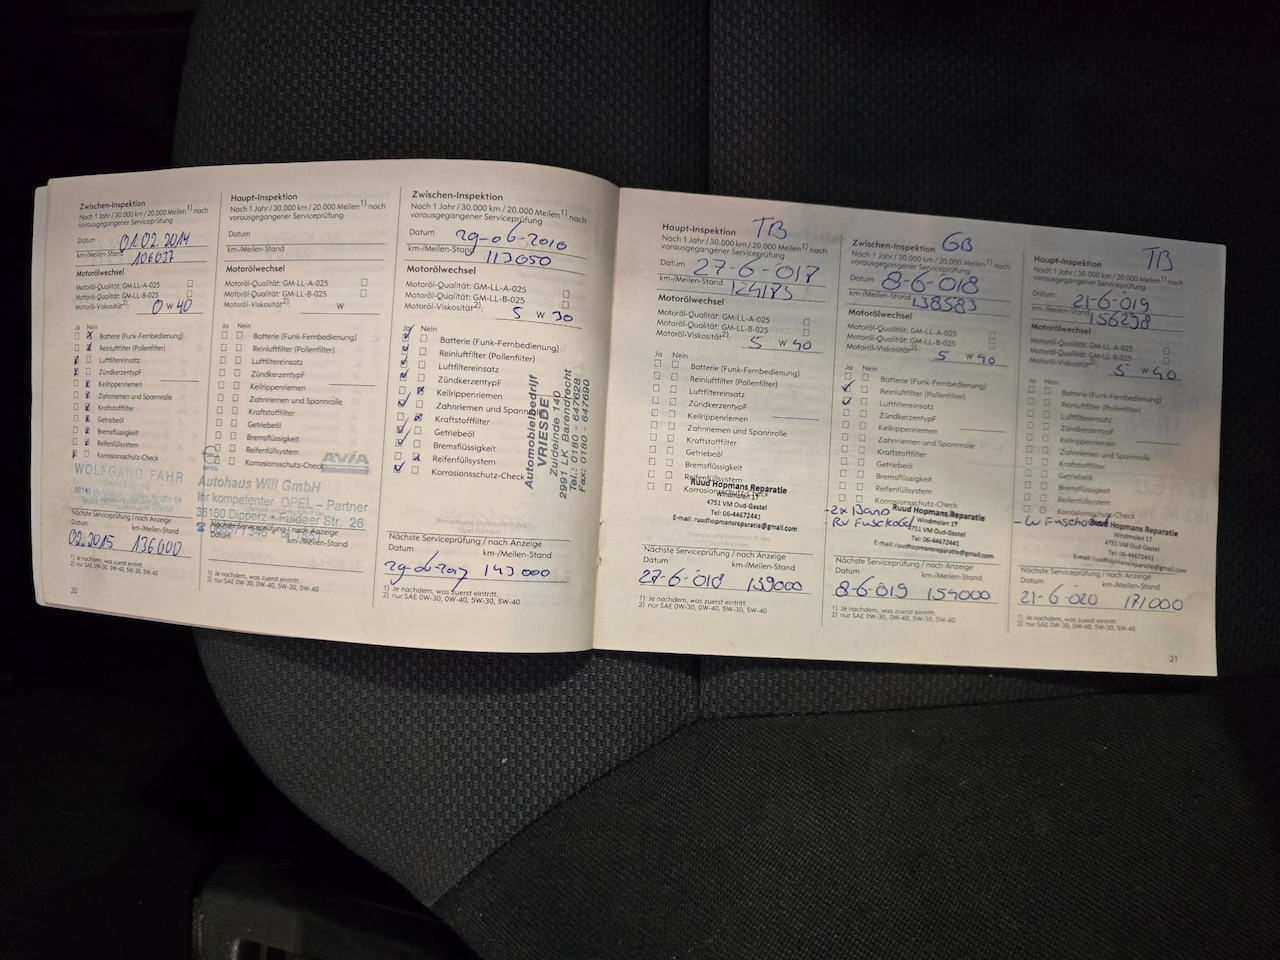 Zwischen-Inspektion
Nach 1 Jahr / 30.000 km / 20.000 Meilen1) nach
vorausgegangener Serviceprüfung
Datum 01.02.2014
km-/Meilen-Stand 106037
Motorölwechsel
Motoröl-Qualität: GM-LL-A-025
Motoröl-Qualität: GM-LL-B-025
Motoröl-Viskosität2): 0 W 40
Ja Nein
Batterie (Funk-Fernbedienung)
Reinluftfilter (Pollenfilter)
Luftfiltereinsatz
ZündkerzentypF
Keilrippenriemen
Zahnriemen und Spannrolle
Kraftstofffilter
Getriebeöl
Bremsflüssigkeit
Reifenfüllsystem
Korrosionsschutz-Check
WOLFGANG FAHR
Nächste Serviceprüfung / nach Anzeige
Datum km-/Meilen-Stand
02.2015 136000
1) Je nachdem, was zuerst eintritt.
2) nur SAE 0W-30, 0W-40, 5W-30, 5W-40
20
Haupt-Inspektion
Nach 1 Jahr / 30.000 km / 20.000 Meilen1) nach
vorausgegangener Serviceprüfung
Datum
km-/Meilen-Stand
Motorölwechsel
Motoröl-Qualität: GM-LL-A-025
Motoröl-Qualität: GM-LL-B-025
Motoröl-Viskosität2): W
Ja Nein
Batterie (Funk-Fernbedienung)
Reinluftfilter (Pollenfilter)
Luftfiltereinsatz
ZündkerzentypF
Keilrippenriemen
Zahnriemen und Spannrolle
Kraftstofffilter
Getriebeöl
Bremsflüssigkeit
Reifenfüllsystem
Korrosionsschutz-Check
AVIA
Autohaus Will GmbH
Ihr kompetenter OPEL - Partner
36160 Dipperz • Fuldaer Str. 26
Nächste Serviceprüfung / nach Anzeige
Datum km-/Meilen-Stand
1) Je nachdem, was zuerst eintritt.
2) nur SAE 0W-30, 0W-40, 5W-30, 5W-40
Zwischen-Inspektion
Nach 1 Jahr / 30.000 km / 20.000 Meilen1) nach
vorausgegangener Serviceprüfung
Datum 29-06-2010
km-/Meilen-Stand 113050
Motorölwechsel
Motoröl-Qualität: GM-LL-A-025
Motoröl-Qualität: GM-LL-B-025
Motoröl-Viskosität2): 5 W 30
Ja Nein
Batterie (Funk-Fernbedienung)
Reinluftfilter (Pollenfilter)
Luftfiltereinsatz
ZündkerzentypF
Keilrippenriemen
Zahnriemen und Spannrolle
Kraftstofffilter
Getriebeöl
Bremsflüssigkeit
Reifenfüllsystem
Korrosionsschutz-Check
Automobielbedrijf
VRIESDE
Zuideinde 140
2991 LK Barendrecht
Tel.: 0180 - 647628
Fax: 0180 - 647690
Nächste Serviceprüfung / nach Anzeige
Datum km-/Meilen-Stand
143000
1) Je nachdem, was zuerst eintritt.
2) nur SAE 0W-30, 0W-40, 5W-30, 5W-40
Haupt-Inspektion TB
Nach 1 Jahr / 30.000 km / 20.000 Meilen1) nach
vorausgegangener Serviceprüfung
Datum 27-6-017
km-/Meilen-Stand 124173
Motorölwechsel
Motoröl-Qualität: GM-LL-A-025
Motoröl-Qualität: GM-LL-B-025
Motoröl-Viskosität2): 5 W 40
Ja Nein
Batterie (Funk-Fernbedienung)
Reinluftfilter (Pollenfilter)
Luftfiltereinsatz
ZündkerzentypF
Keilrippenriemen
Zahnriemen und Spannrolle
Kraftstofffilter
Getriebeöl
Bremsflüssigkeit
Reifenfüllsystem
Korrosionsschutz-Check
Ruud Hopmans Reparatie
Windmolen 17
4751 VM Oud-Gastel
Tel: 06-44672441
E-mail: ruudhopmansreparatie@gmail.com
Nächste Serviceprüfung / nach Anzeige
Datum km-/Meilen-Stand
27-6-018 139000
1) Je nachdem, was zuerst eintritt.
2) nur SAE 0W-30, 0W-40, 5W-30, 5W-40
Zwischen-Inspektion GB
Nach 1 Jahr / 30.000 km / 20.000 Meilen1) nach
vorausgegangener Serviceprüfung
Datum 8-6-018
km-/Meilen-Stand 138583
Motorölwechsel
Motoröl-Qualität: GM-LL-A-025
Motoröl-Qualität: GM-LL-B-025
Motoröl-Viskosität2): 5 W 40
Ja Nein
Batterie (Funk-Fernbedienung)
Reinluftfilter (Pollenfilter)
Luftfiltereinsatz
ZündkerzentypF
Keilrippenriemen
Zahnriemen und Spannrolle
Kraftstofffilter
Getriebeöl
Bremsflüssigkeit
Reifenfüllsystem
Korrosionsschutz-Check
-2x Band
-RV Fuseekogel
Ruud Hopmans Reparatie
Windmolen 17
4751 VM Oud-Gastel
Tel: 06-44672441
E-mail: ruudhopmansreparatie@gmail.com
Nächste Serviceprüfung / nach Anzeige
Datum km-/Meilen-Stand
8-6-019 154000
1) Je nachdem, was zuerst eintritt.
2) nur SAE 0W-30, 0W-40, 5W-30, 5W-40
Haupt-Inspektion TB
Nach 1 Jahr / 30.000 km / 20.000 Meilen1) nach
vorausgegangener Serviceprüfung
Datum 21-6-019
km-/Meilen-Stand 156298
Motorölwechsel
Motoröl-Qualität: GM-LL-A-025
Motoröl-Qualität: GM-LL-B-025
Motoröl-Viskosität2): 5 W 40
Ja Nein
Batterie (Funk-Fernbedienung)
Reinluftfilter (Pollenfilter)
Luftfiltereinsatz
ZündkerzentypF
Keilrippenriemen
Zahnriemen und Spannrolle
Kraftstofffilter
Getriebeöl
Bremsflüssigkeit
Reifenfüllsystem
Korrosionsschutz-Check
Hopmans Reparatie
Windmolen 17
4751 VM Oud-Gastel
Tel: 06-44672441
E-mail: ruudhopmansreparatie@gmail.com
Nächste Serviceprüfung / nach Anzeige
Datum km-/Meilen-Stand
21-6-020 171000
1) Je nachdem, was zuerst eintritt.
2) nur SAE 0W-30, 0W-40, 5W-30, 5W-40
21